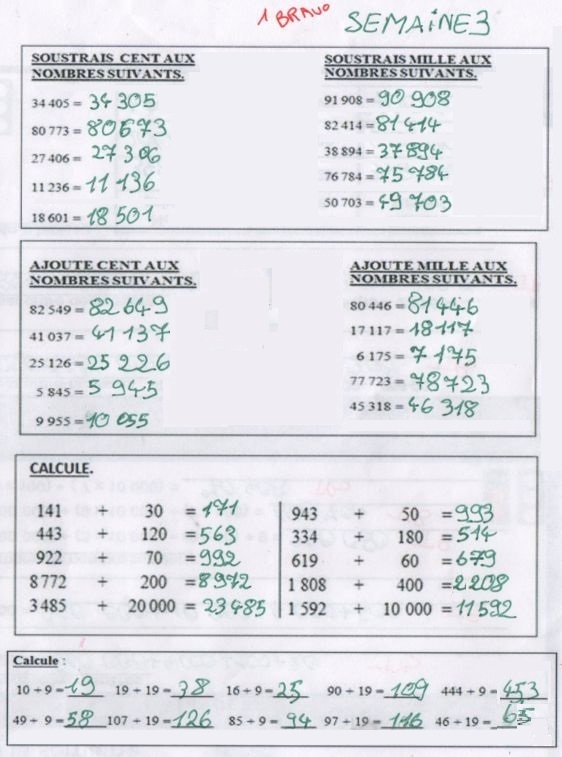 1 BRAVO SEMAINE 3
SOUSTRAIS CENT AUX
NOMBRES SUIVANTS.
34 405 = 34 305
80 773 = 80673
27 406 = 27 306
11 236 = 11 136
18 601 = 18 501
SOUSTRAIS MILLE AUX
NOMBRES SUIVANTS.
91 908 = 90 908
82 414 = 81414
38 894 = 37 894
76 784 = 75 784
50 703 = 49 703
AJOUTE CENT AUX
NOMBRES SUIVANTS.
82 549 = 82 649
41 037 = 41 137
25 126 = 25 226
5 845 = 5 945
9 955 = 10 055
AJOUTE MILLE AUX
NOMBRES SUIVANTS.
80 446 = 81446
17 117 = 18117
6 175 = 7 175
77 723 = 78723
45 318 = 46 318
CALCULE.
141 + 30 = 171
443 + 120 = 563
922 + 70 = 992
8 772 + 200 = 8972
3 485 20 000 = 23 485
943 + 50 = 993
334 + 180 = 514
619 + 60 = 679
1 808 + 400 = 2208
1 592 + 10 000 = 11592
Calcule :
10 + 9 = 19 19 + 19 = 38 16 + 9 = 25 90 + 19 = 109 444 + 9 = 453
49 + 9 = 58 107 + 19 = 126 85 + 9 = 94 97 + 19 = 116 46 + 19 = 65